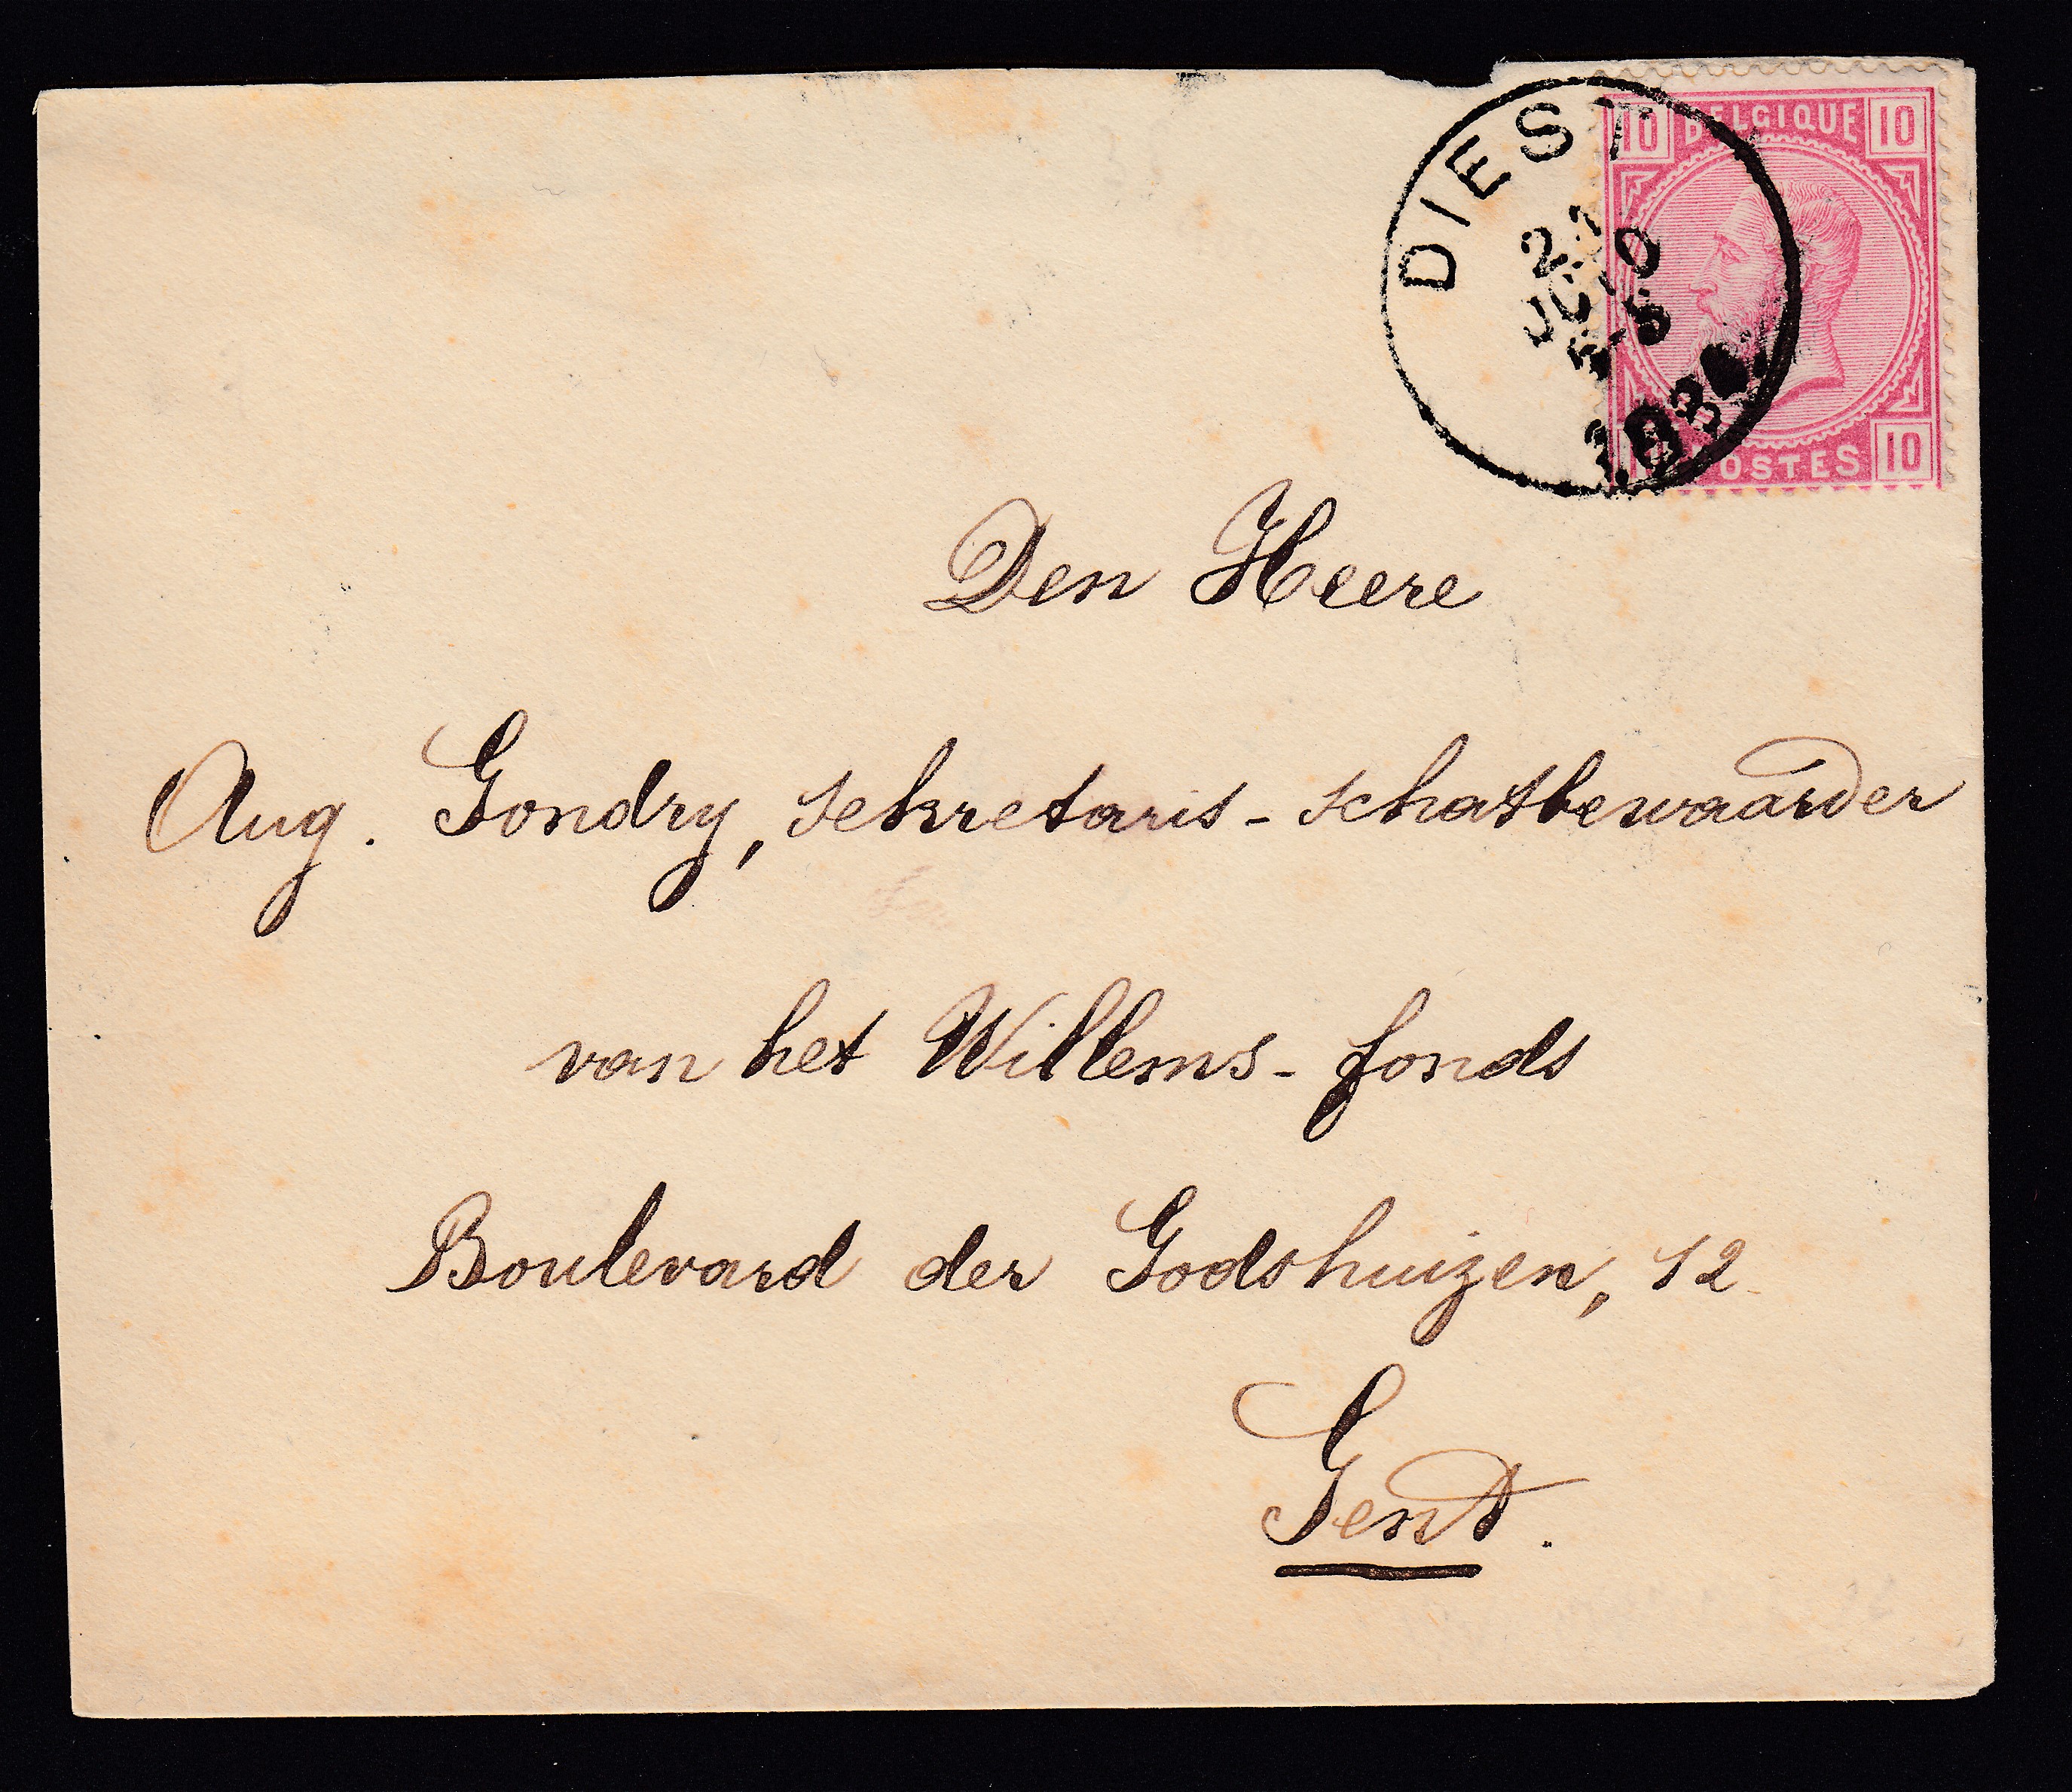 DIEST
10 BELGIQUE 10
POSTES 10
Den Heere
Aug. Gondry, sekretaris-schatbewaarder
van het Willems-fonds
Boulevard der Godshuizen, 12
Gent.